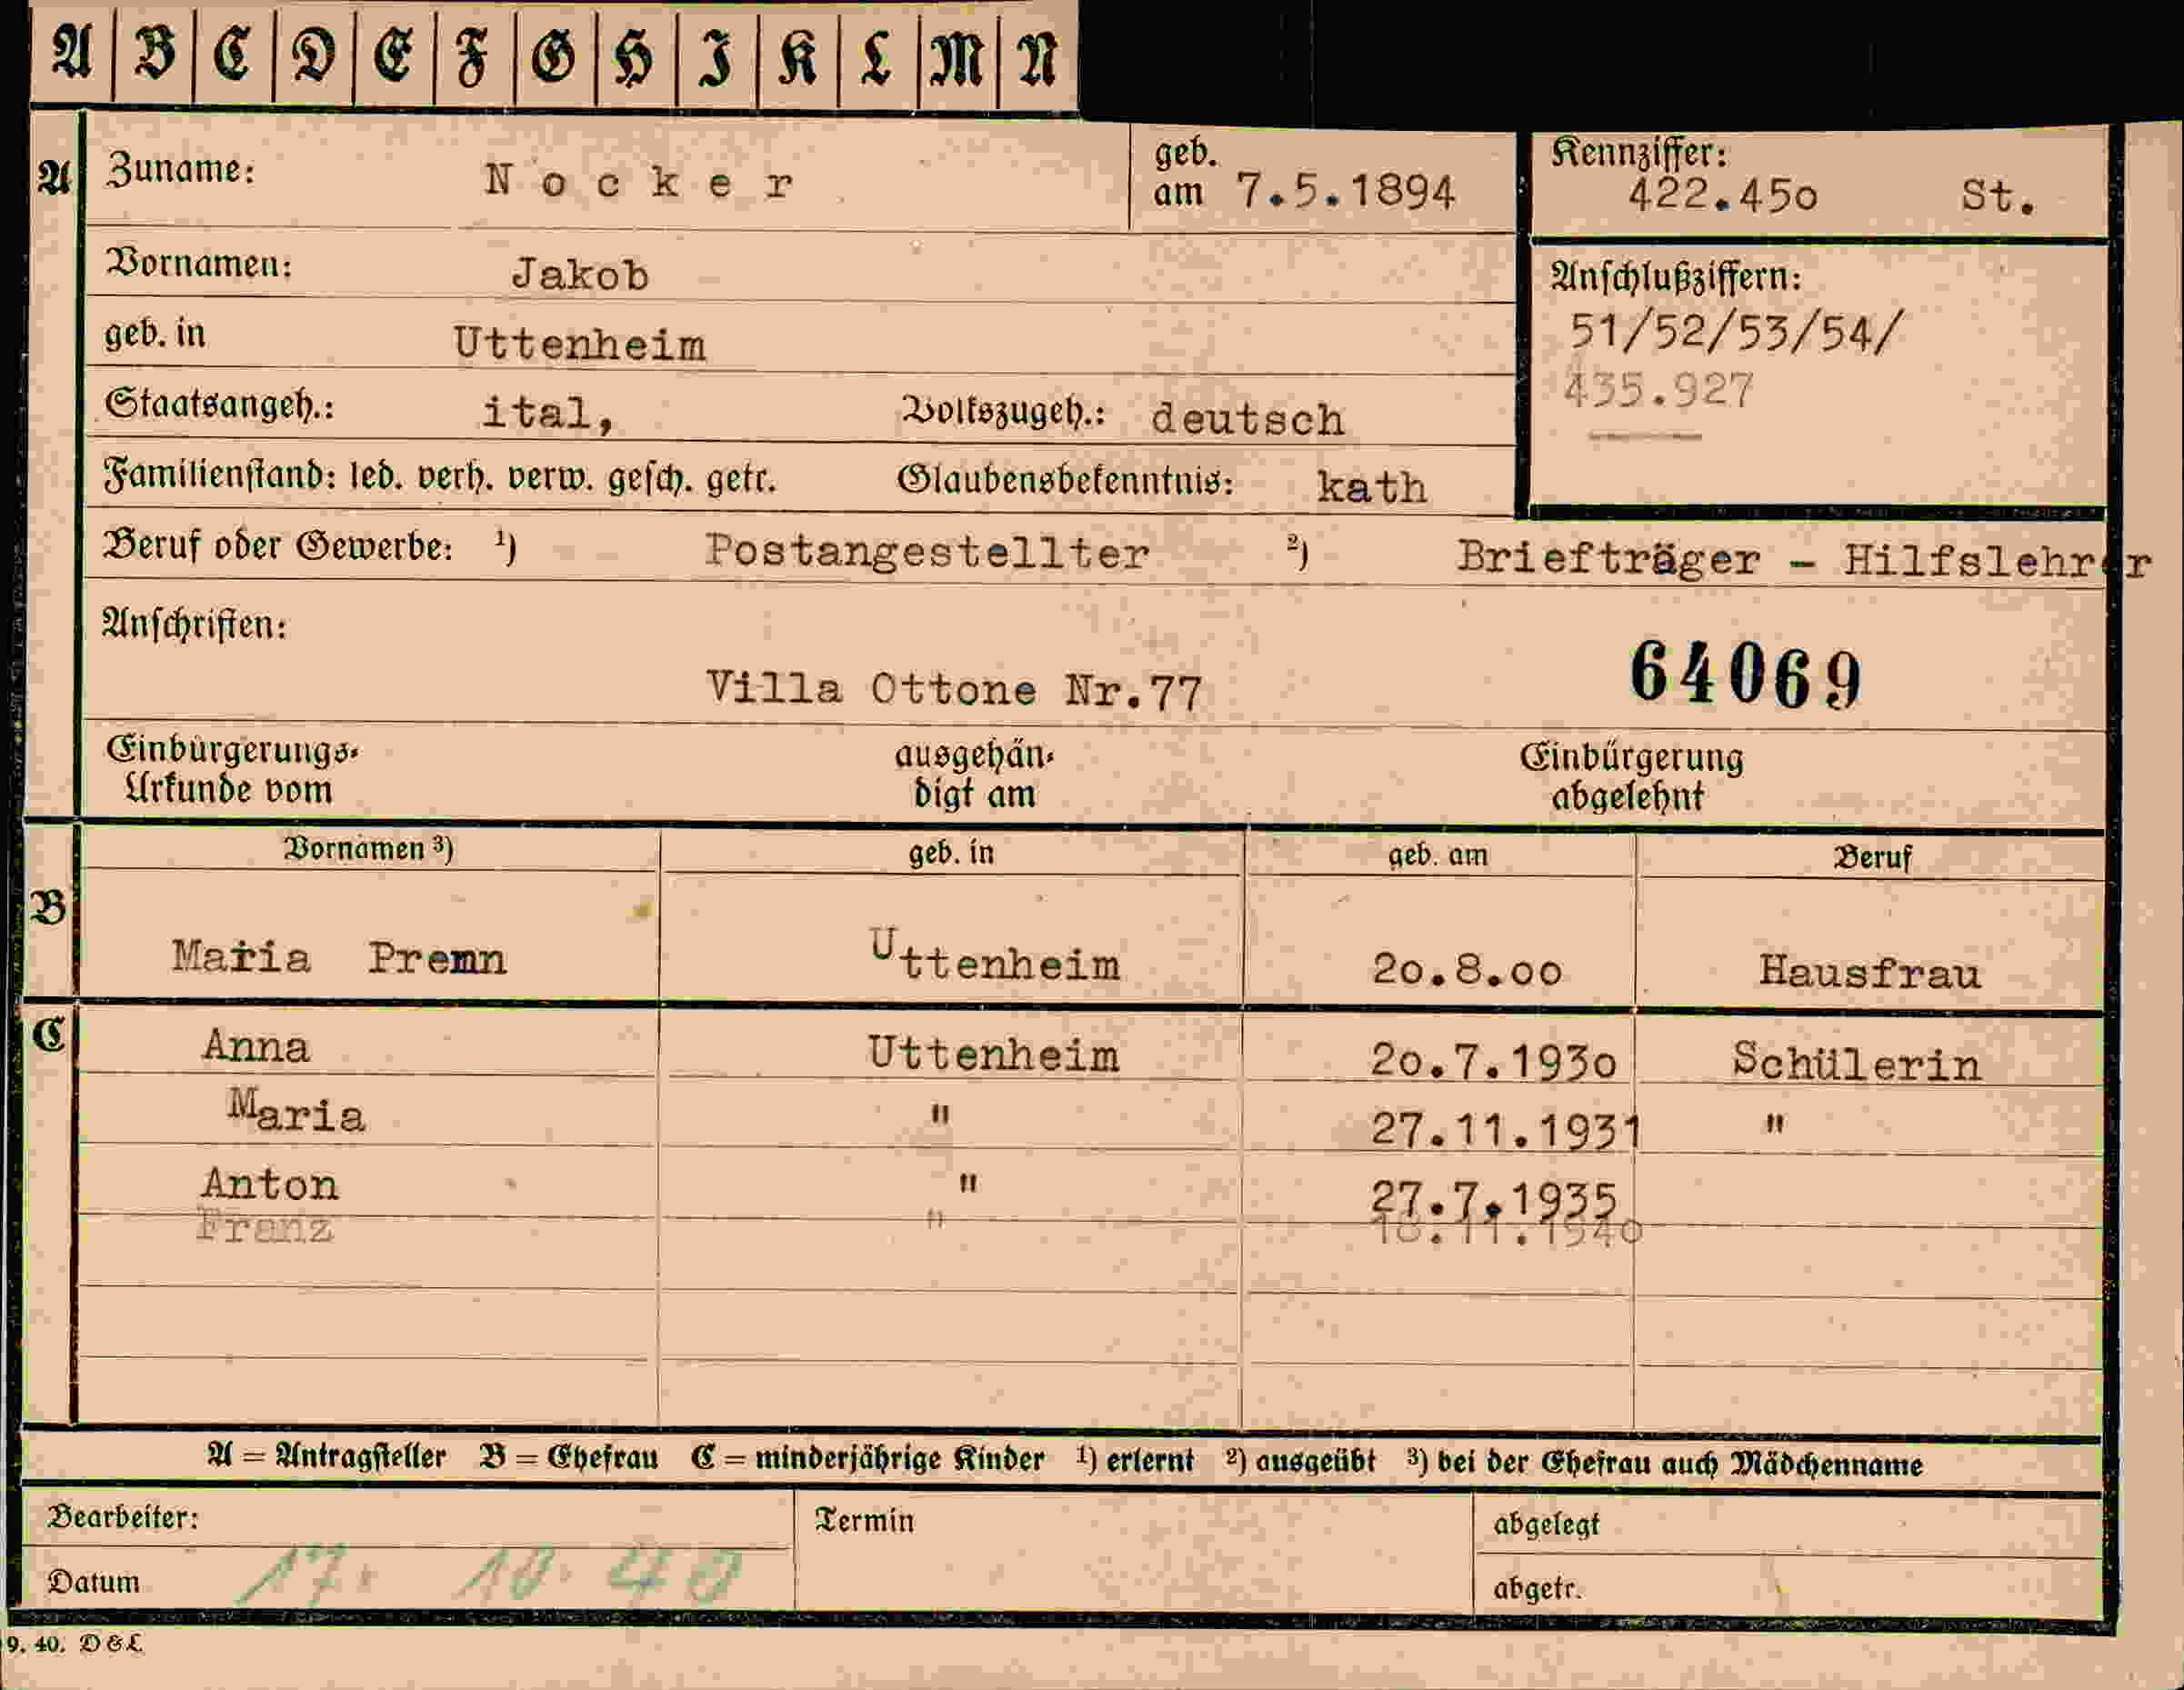 A B C D E F G H I K L M N
A Zuname: Nocker geb. am 7.5.1894 Kennziffer: 422.45o St.
Vornamen: Jakob
Anschlußziffern:
geb. in Uttenheim 51/52/53/54/
435.927
Staatsangeh.: ital, Volkszugeh.: deutsch
Familienstand: led. verh. verw. gesch. getr. Glaubensbekenntnis: kath
Beruf oder Gewerbe: 1) Postangestellter 2) Briefträger - Hilfslehrer
Anschriften:
Villa Ottone Nr.77 64069
Einbürgerungs- ausgehän- Einbürgerung
Urkunde vom digt am abgelehnt
Vornamen 3) geb. in geb. am Beruf
B
Maria Premn Uttenheim 2o.8.oo Hausfrau
C Anna Uttenheim 2o.7.193o Schülerin
Maria " 27.11.1931 "
Anton " 27.7.1935
Franz " 18.11.194o
A = Antragsteller B = Ehefrau C = minderjährige Kinder 1) erlernt 2) ausgeübt 3) bei der Ehefrau auch Mädchenname
Bearbeiter: Termin abgelegt
Datum 17. 10. 40 abgetr.
9. 40. D & L